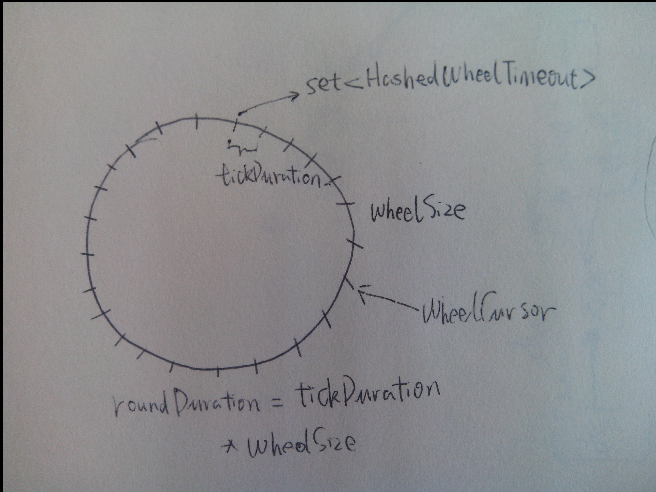 set<HashedWheelTimeout>
tickDuration
wheelSize
WheelCursor
roundDuration = tickDuration
* wheelSize